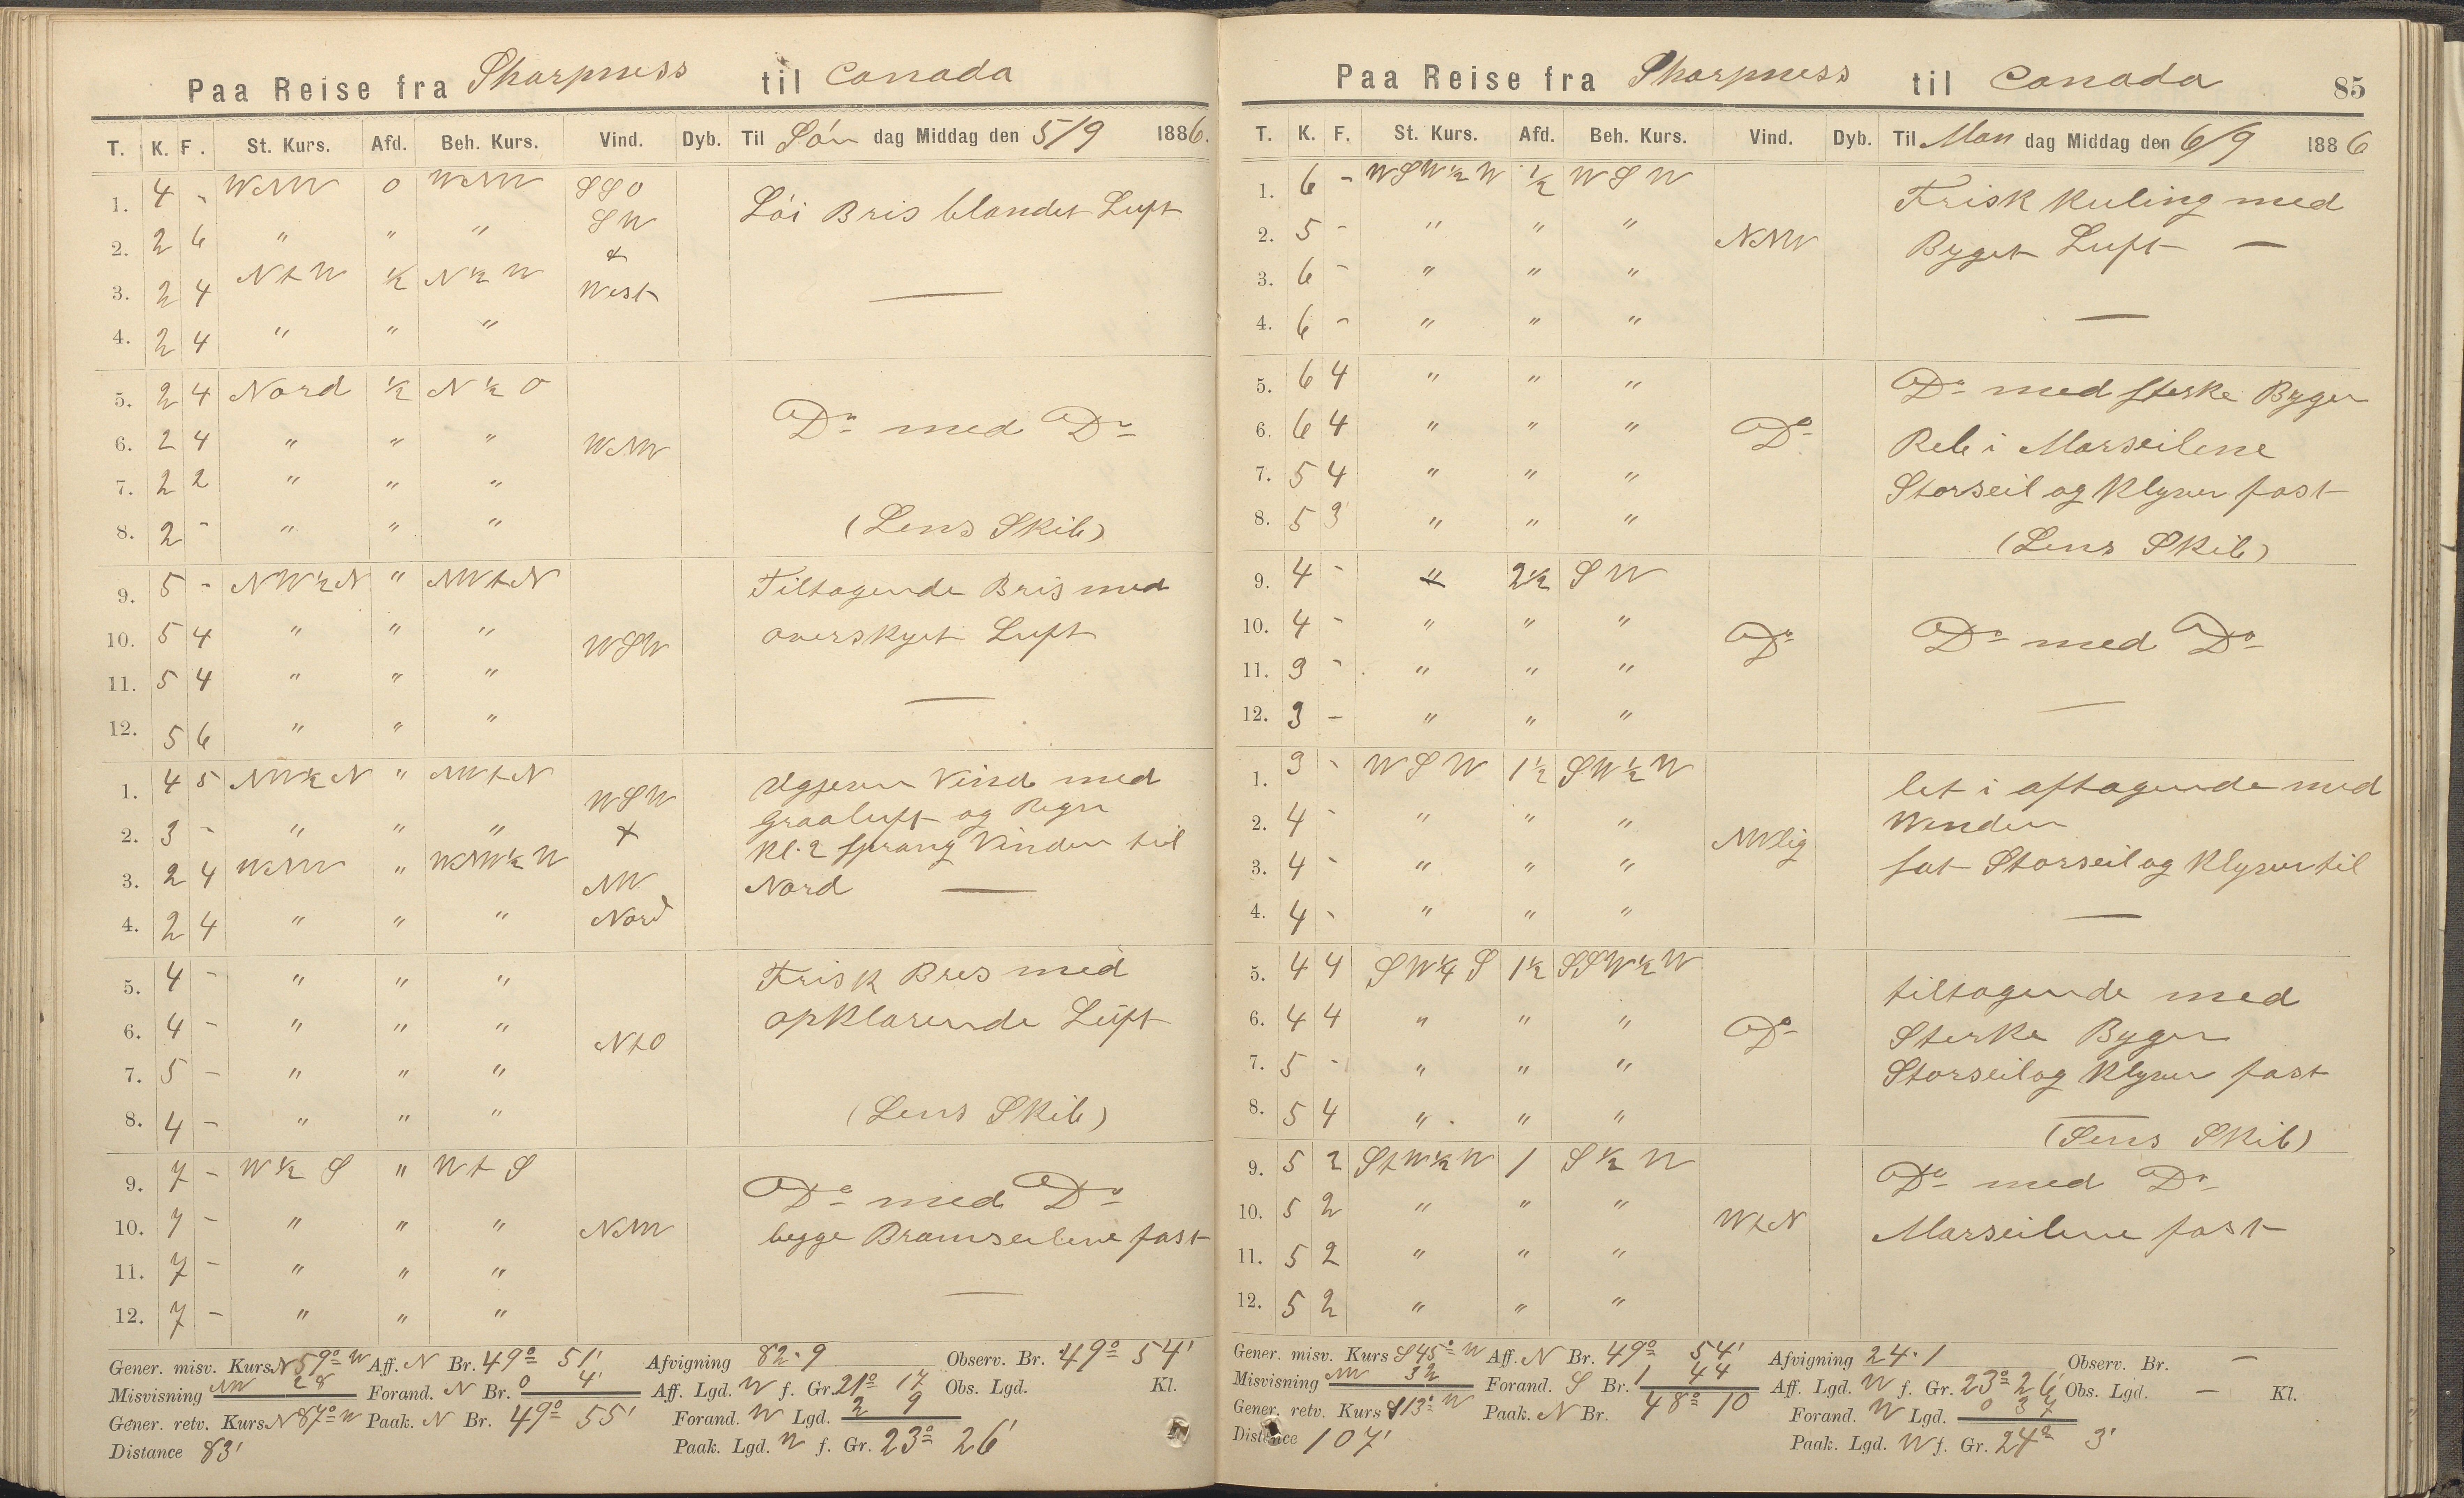 Paa Reise fra Sharpness til Canada
T. K. F. St. Kurs. Afd. Beh. Kurs. Vind. Dyb. Til Søn dag Middag den 5/9 1886.
1. 4 - WNW 0 WNW SSO Løi Bris blandet Luft
2. 2 6 " " " SW
3. 2 4 NtW ½ N½W West —
4. 2 4 " " "
5. 2 4 Nord ½ N½O
6. 2 4 " " " WNW Do med Do
7. 2 2 " " "
8. 2 - " " " (Lens Skib)
9. 5 - NW½N " NWtN Tiltagende Bris med
10. 5 4 " " " WSW overskyet Luft
11. 5 4 " " " —
12. 5 6 " " "
1. 4 5 NW½N " NWtN WSW Ugjevn Vind med
2. 3 - " " " + Graaluft og Regn
3. 2 4 WNW " WNW½W NW Kl. 2 sprang Vinden til
4. 2 4 " " " Nord Nord —
5. 4 - " " " Frisk Bris med
6. 4 - " " " NtO opklarende Luft
7. 5 - " " "
8. 4 - " " " (Lens Skib)
9. 7 - W½S " WtS Do med Do
10. 7 - " " " NNW begge Bramseilene fast
11. 7 - " " "
12. 7 - " " " —
Gener. misv. Kurs N 59° W Aff. N Br. 49° 51' Afvigning 82.9 Observ. Br. 49° 54'
Misvisning NW 28 Forand. N Br. 0 4' Aff. Lgd. W f. Gr. 21° 17 Obs. Lgd. Kl.
Gener. retv. Kurs N 87° W Paak. N Br. 49° 55' Forand. W Lgd. 2 9
Distance 83' Paak. Lgd. W f. Gr. 23° 26'
Paa Reise fra Sharpness til Canada 85
T. K. F. St. Kurs. Afd. Beh. Kurs. Vind. Dyb. Til Man dag Middag den 6/9 1886
1. 6 - WSW½W ½ WSW Frisk Kuling med
2. 5 - " " " NNW Byget Luft —
3. 6 - " " "
4. 6 - " " " —
5. 6 4 " " " Do med sterke Byger
6. 6 4 " " " Do Reb i Marseilene
7. 5 4 " " " Storseil og Klyver fast
8. 5 3 " " " (Lens Skib)
9. 4 - " 2½ SW
10. 4 - " " " Do Do med Do
11. 3 - " " "
12. 3 - " " " —
1. 3 - WSW 1½ SW½W let i aftagende med
2. 4 - " " " Vinden
3. 4 - " " " NWlig sat Storseil og Klyver til
4. 4 - " " " —
5. 4 4 SW¼S 1½ SSW½W tiltagende med
6. 4 4 " " " Do Sterke Byger
7. 5 - " " " Storseil og Klyver fast
8. 5 4 " " " (Lens Skib)
9. 5 2 StW½W 1 S½W Do med Do
10. 5 2 " " " WtN Marseilene fast
11. 5 2 " " "
12. 5 2 " " "
Gener. misv. Kurs S 45° W Aff. N Br. 49° 54' Afvigning 24.1 Observ. Br. —
Misvisning NW 32 Forand. S Br. 1 44 Aff. Lgd. W f. Gr. 23° 26' Obs. Lgd. — Kl.
Gener. retv. Kurs S 13° W Paak. N Br. 48° 10 Forand. W Lgd. 0 37
Distance 107' Paak. Lgd. W f. Gr. 24° 3'